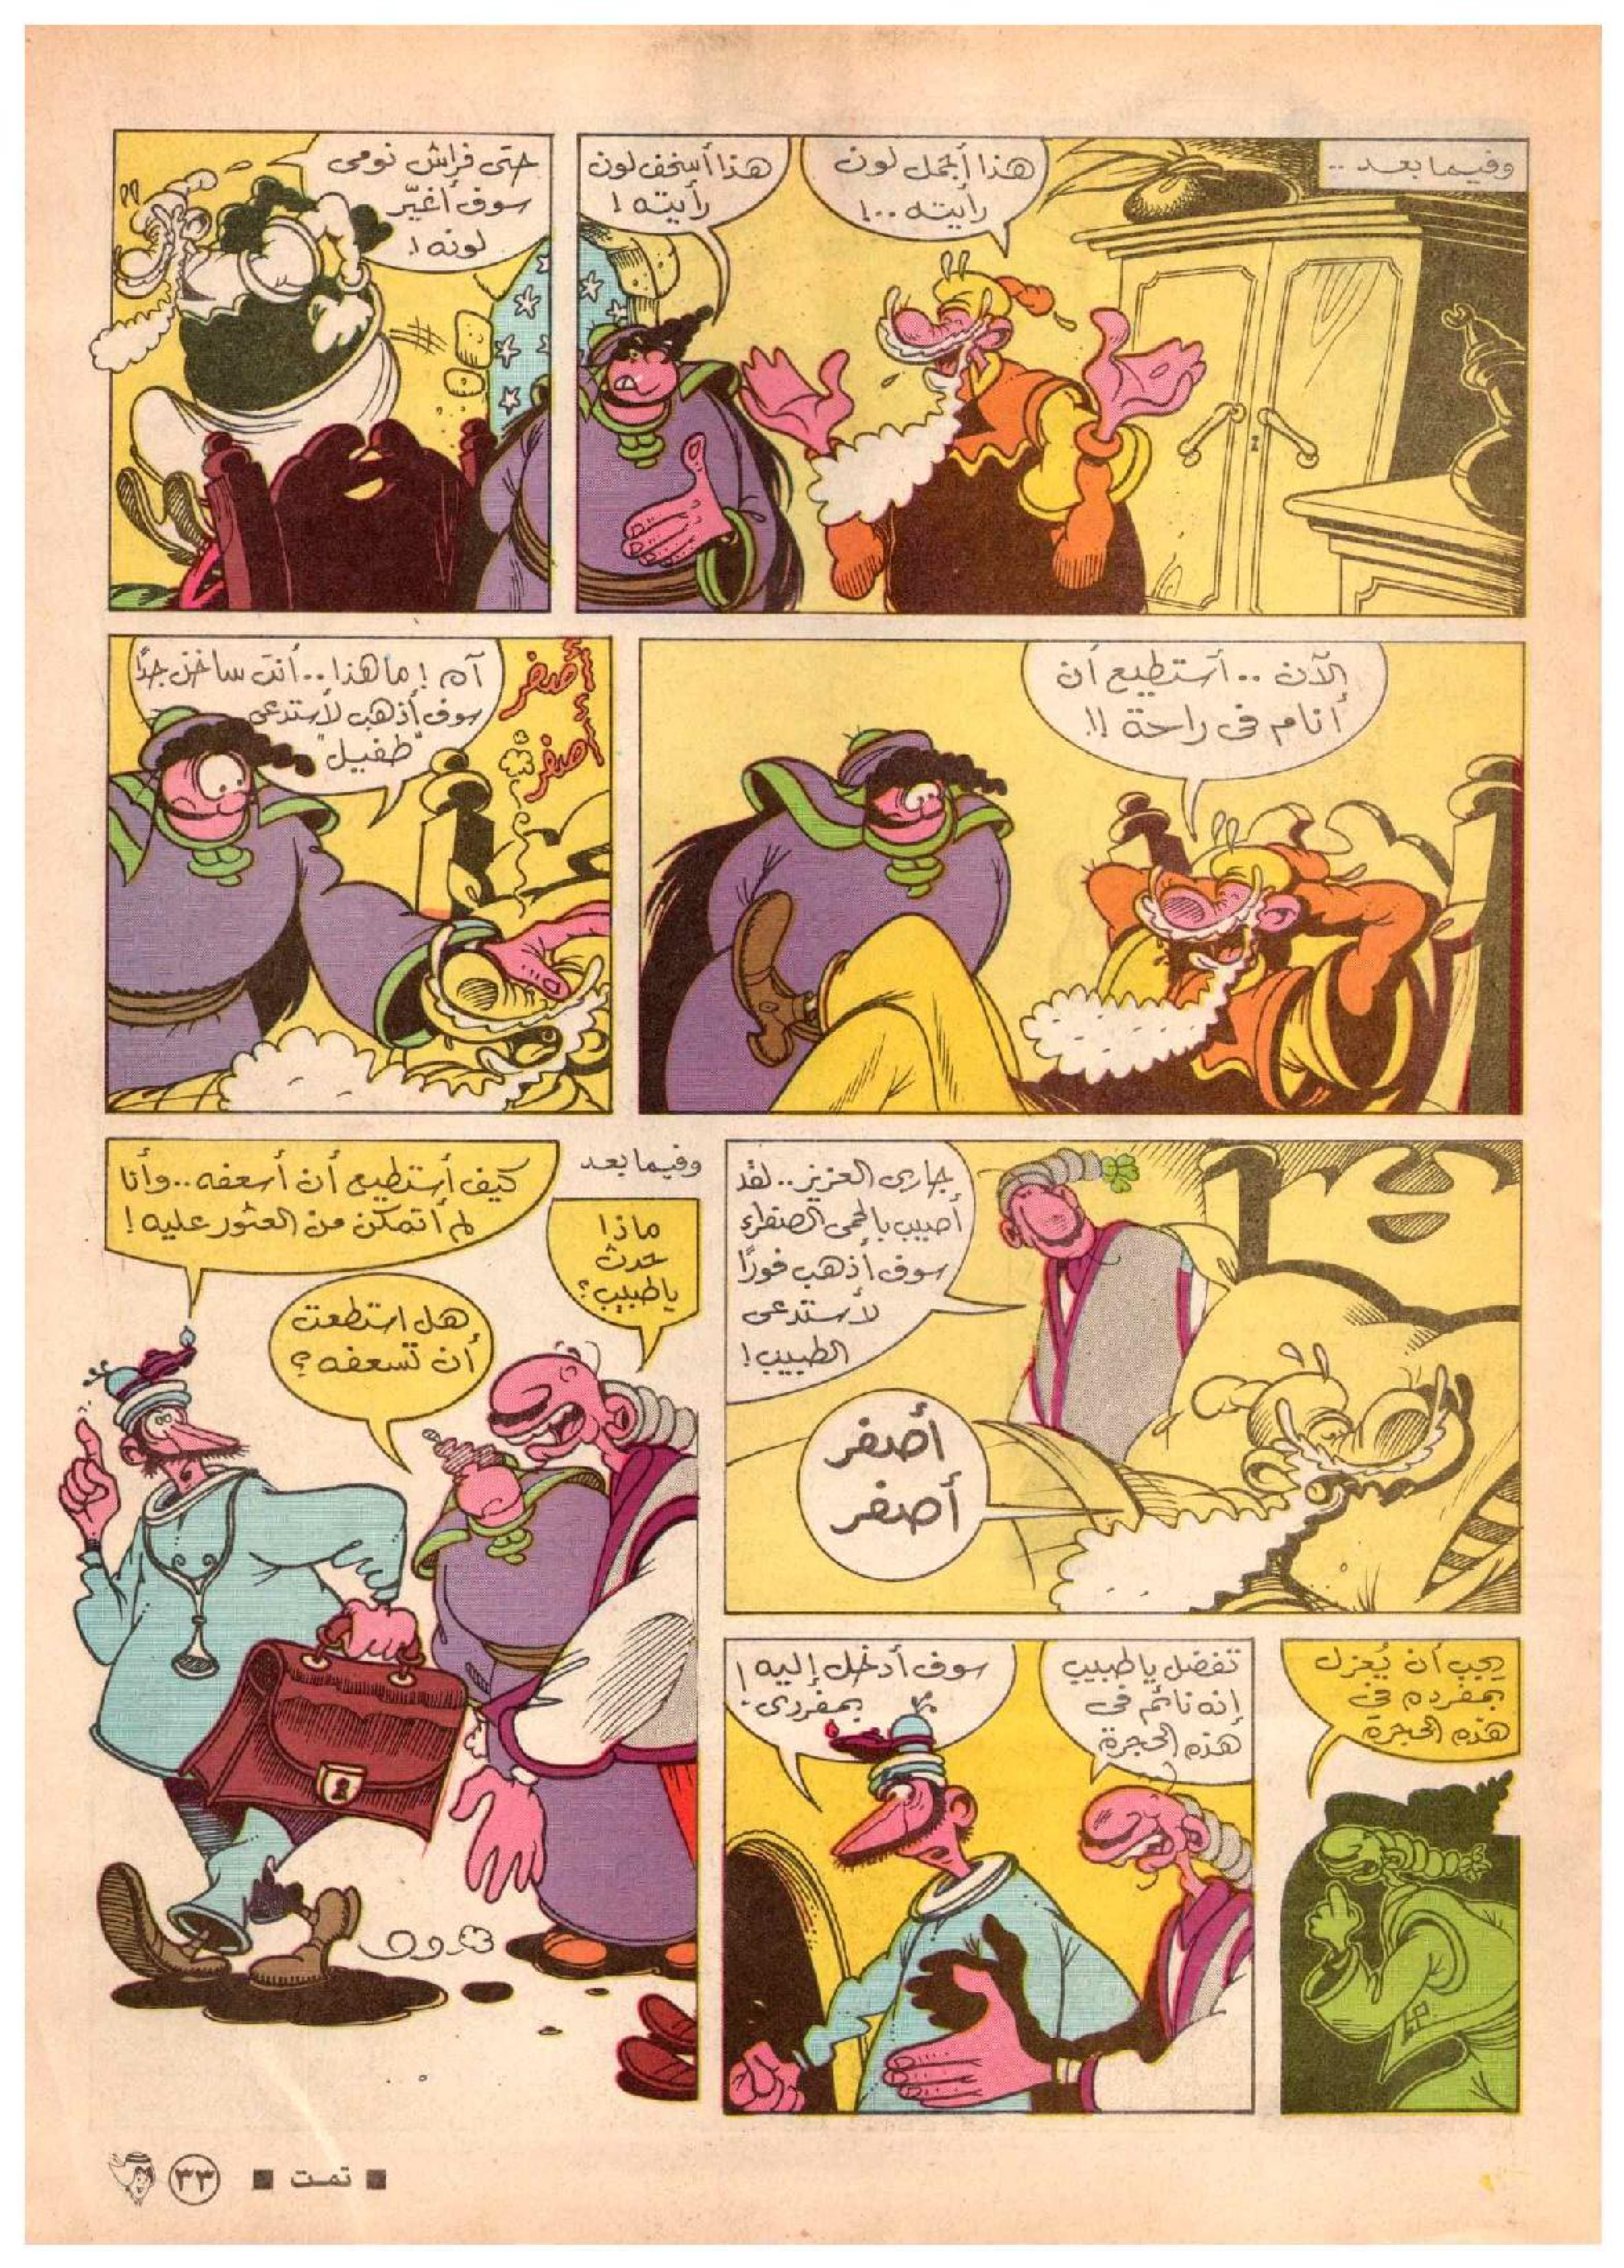 وفيما بعد ..
هذا أجمل لون
رأيته ..!
هذا أسخف لون
رأيته !
حتى فراش نومى
سوف أغيّر
لونه !
الآن .. أستطيع أن
أنام فى راحة !!
أصفر
أصفر
آه ! ما هذا .. أنت ساخن جدًا
سوف أذهب لأستدعى
"طفيل"
جارى العزيز .. لقد
أصيب بالحمى الصفراء
سوف أذهب فورًا
لأستدعى
الطبيب !
أصفر
أصفر
يجب أن يُعزل
بمفرده فى
هذه الحجرة
تفضل يا طبيب
إنه نائم فى
هذه الحجرة
سوف أدخل إليه
بمفردى !
وفيما بعد
ماذا
حدث
يا طبيب ؟
هل استطعت
أن تسعفه ؟
كيف أستطيع أن أسعفه .. وأنا
لم أتمكن من العثور عليه !
■ تمت ■
٣٣